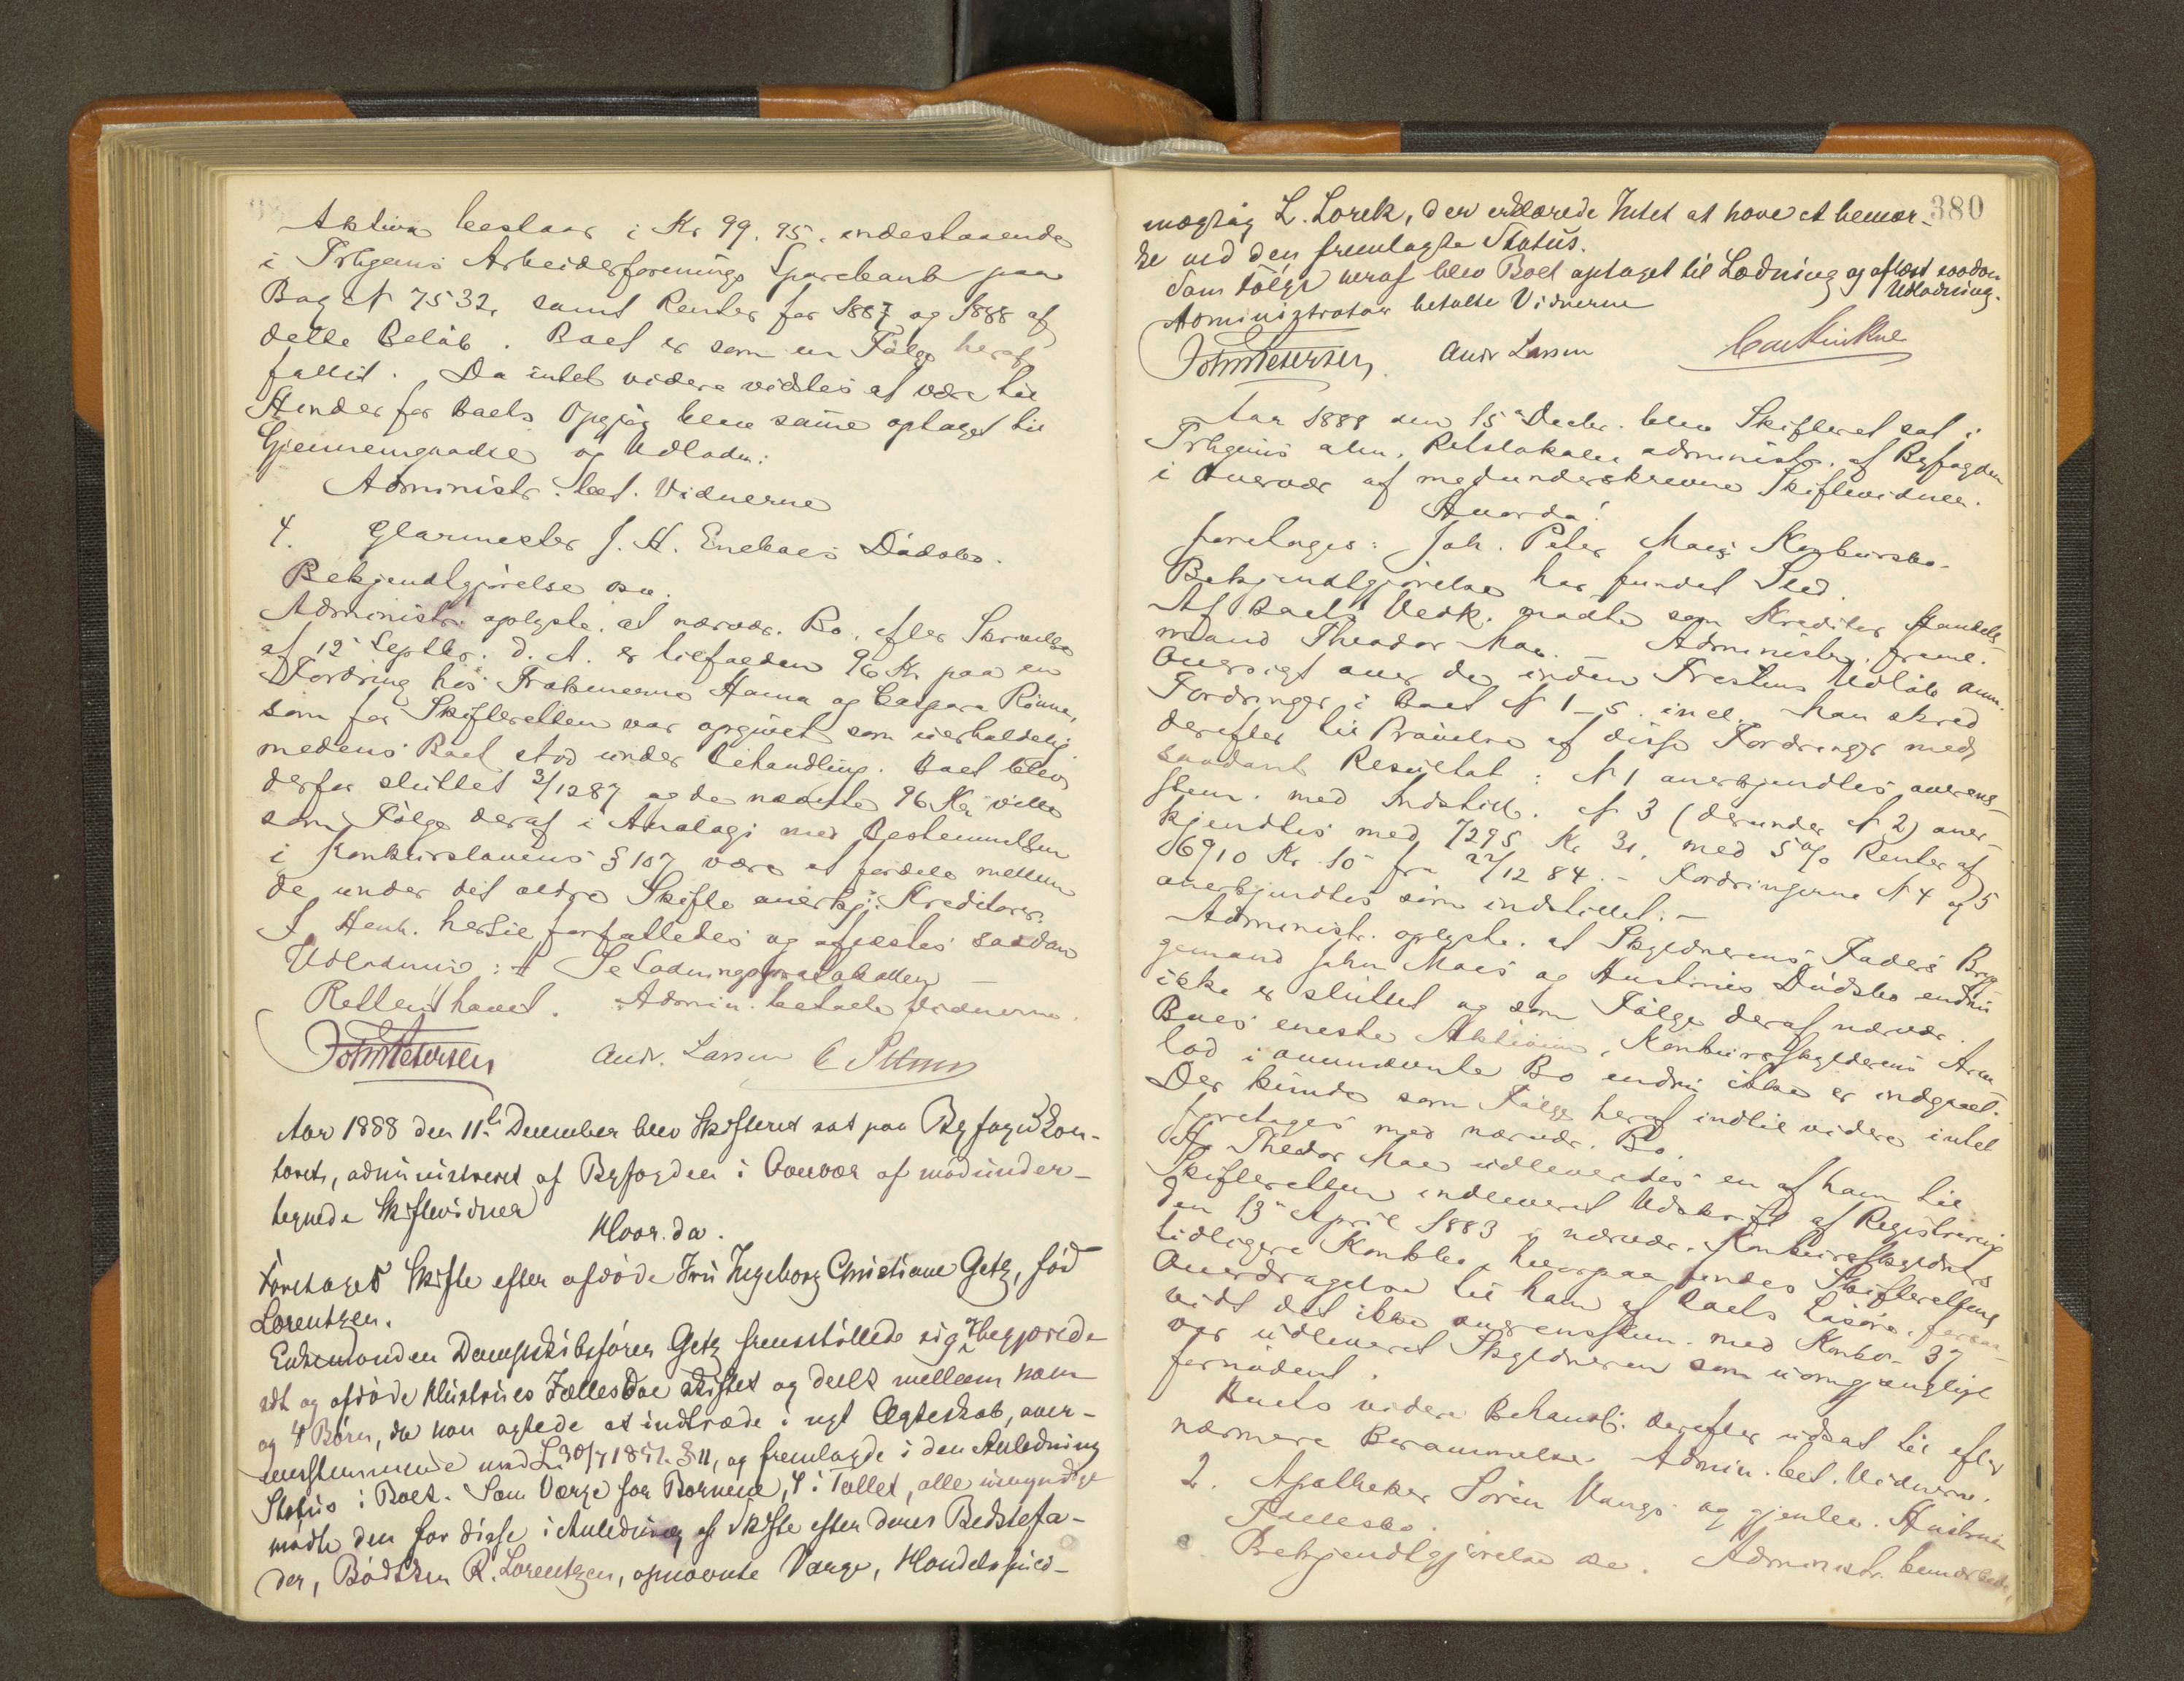 Aktiva bestaar i Kr 99. 95. indestaaende
i Trhjems Arbeiderforenings Sparebank paa
Bog № 7532, samt Renter for 1887 og 1888 af
dette Beløb. Boet er som en Følge heraf
fallit. Da intet videre vidstes at være til
Hinder for Boets Opgjør blev samme optaget til
Gjennemgaaelse og Udlodn:
Administr. bet. Vidnerne
4. Glarmester J. H. Enebaes Dødsbo.
Bekjendtgjørelse
Administr. oplyste. at nærvær. Bo. efter Skrivelse
af 12 Septbr. d. A. er tilfalden 96 Kr paa en
Fordring hos Frøknerne Hanna og Caspara Rønne,
som for Skifteretten var opgivet som uerholdelig
medens Boet stod under Behandling. Boet blev
derfor sluttet 3/12 87 og de nævnte 96 Kr ville
som Følge deraf i Analogi med Bestemmelsen
i Konkurslovens § 107 være at fordele mellem
de under det ældre Skifte anerkj. Kreditorer.
I Henh. hertil forfattedes og aflæstes saadan
Udlodning: Se Lodningsprotokollen
Retten hævet. Admin. betalte Vidnerne.
John Petersen Andr. Larsen
Aar 1888 den 11te December blev Skifteret sat paa Byfogdkon-
toret, administreret af Byfogden i Overvær af medunder-
tegnede Skiftevidner
Hvor. da.
Foretoges Skifte efter afdøde Fru Ingeborg Christiane Getz, fød
Lorentzen.
Enkemanden Dampskibsfører Getz fremstillede sig & begjærede
sit og afdøde Hustrues Fællesboe skiftet og deelt mellem ham
og 4 Børn, da han agtede at indtræde i nyt Ægteskab, over-
ensstemmende med L. 30/7 1851 § 11, og fremlagde i den Anledning
Status i Boet. Som Værge for Børnene, 4 i Tallet, alle umyndige
mødte den for disse i Anledning af Skifte efter deres Bedstefa-
der, Bødker R. Lorentzen, opnævnte Værge, Handelsfuld-
380
mægtig L. Lorck, der erklærede Intet at have at bemær-
ke ved den fremlagte Status.
Som Følge heraf blev Boet optaget til Lodning og aflæst saadan
Udlodning.
Administrator betalte Vidnerne
John Petersen Andr Larsen
Aar 1888 den 15de Decbr. blev Skifteret sat i
Trhjems alm. Retslokale administr. af Byfogden
i Overvær af medunderskrevne Skiftevidner.
Hvorda!
foretoges: Joh. Peter Moes Konkursbo.
Bekjendtgjørelse har fundet Sted.
Af Boets Vedk. mødte som Kreditor Handels-
mand Theodor Moe. Administr. freml.
Oversigt over de inden Fristens Udløb anm.
Fordringer i Boet № 1–5. incl. Man skred
derefter til Prøvelse af disse Fordringer med
saadant Resultat: № 1 anerkjendtes overens-
stem. med Indstill. № 3 (derunder № 2) aner-
kjendtes med 7295 Kr 31. med 5 % Renter af
6910 Kr 10 fra 22/12 84. – Fordringerne № 4 og 5
anerkjendtes som indstillet. –
Administr. oplyste. at Skyldnerens Faders Bryg-
gemand John Moes og Hustrues Dødsbo endnu
ikke er sluttet og som Følge deraf nærvær.
Boes eneste Aktivum, Konkursskyldnerens Arve-
lod i ovennævnte Bo endnu ikke er indgaaet.
Der kunde som Følge heraf indtil videre intet
foretages med nærvær. Bo.
Hr Theodor Moe udleveredes en af ham til
Skifteretten indleveret Udskrift af Registrering
den 13de April 1883 i nærvær. Konkursskyldners
tidligere Konkbo, hvorpaa findes Skifterettens
Overdragelse til ham af Boets Løsøre, forsaa-
vidt det ikke overensstem. med Konkl. 37
var udleveret Skyldneren som uomgjængeligt
fornødent.
Boets videre Behandl. derefter udsat til efter
nærmere Berammelse. Admin. bet. Vidnerne.
2. Apotheker Sören Vangs og gjenlev. Hustrues
Fællesbo.
Bekjendtgjørelse Administr. bemærkede,